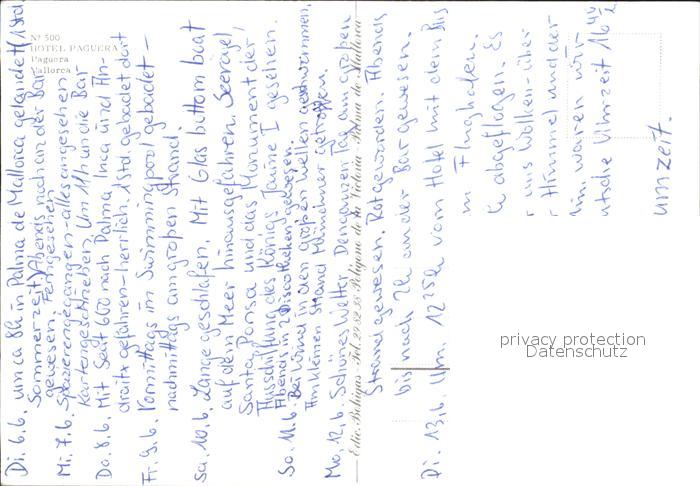 Nº 500
HOTEL PAGUERA
Paguera
Mallorca
Di. 6.6. um ca 8h in Palma de Mallorca gelandet (1 Std.
Sommerzeit) Abends noch an der Bar
gewesen. Ferngesehen
Mi. 7.6. Spazierengegangen - alles angesehen
Kartengeschrieben. Um 11h an die Bar
Do. 8.6. Mit Seat 600 nach Palma Inca und An-
draitx gefahren - herrlich. 1 Std gebadet dort
Fr. 9.6. Vormittags im Swimmingpool gebadet -
nachmittags am großen Strand.
Sa. 10.6. Lange geschlafen. Mit Glas buttom boat
auf dem Meer hinausgefahren. Seeigel,
Santa Ponsa und das Monument der
Ausschiffung des Königs Jaime I gesehen.
Abends in 2 Discotheken gewesen.
So. 11.6. Bei Wind in den großen Wellen geschwommen,
Am kleinen Strand Münchner getroffen.
Mo. 12.6. Schönes Wetter. Den ganzen Tag am großen
Strand gewesen. Rot geworden. Abends
bis nach 2h an der Bar gewesen.
Di. 13.6. Um 12 25h vom Hotel mit dem Bus
m Flughafen.
h abgeflogen. Es
r uns Wolken - über
r Himmel und der
waren wir
utsche Uhrzeit 16
umzeit.
Edic. Bohigas - Tel. 29 82 35 Polígono de la Victoria - Palma de Mallorca
privacy protection
Datenschutz